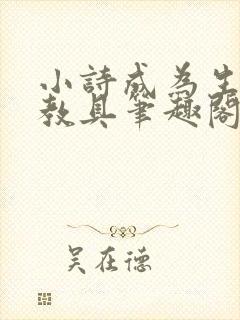 小詩成為生
教具筆趣閣
吴在德